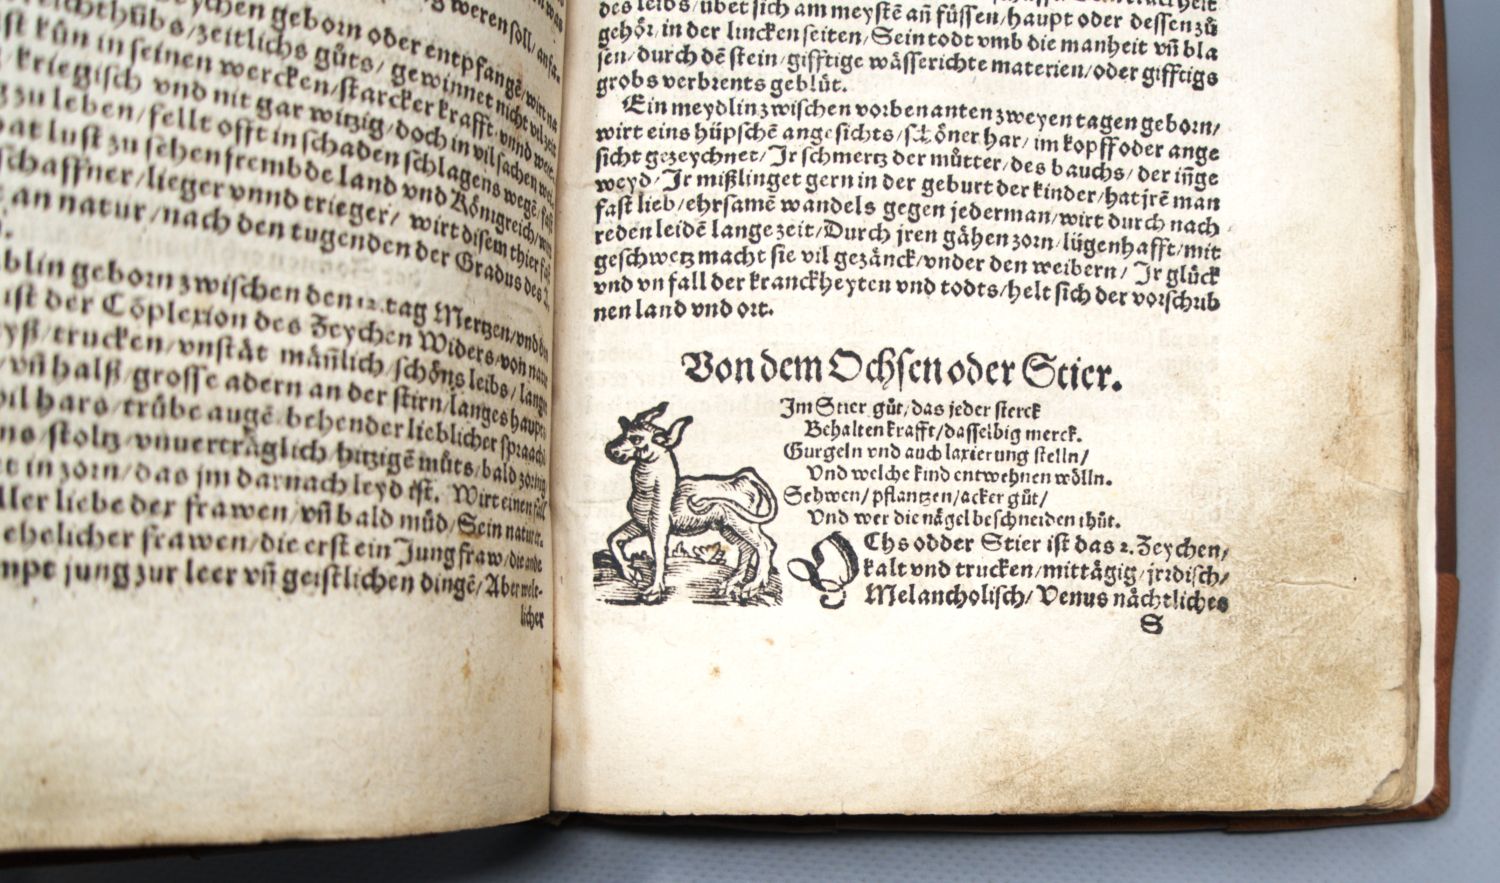 geborn oder entpfangē/wirt
zeitlichs gůts/gewinnet nicht vil
kůn in seinen wercken/starcker krafft vnnd
kriegisch vnd nit gar witzig/doch in vil sachen
zu leben/fellt offt in schaden schlagens wegē/
lust zu sehen frembde land vnd Königreich/
schaffner/lieger vnnd trieger/wirt disem thier
an natur/nach den tugenden der Gradus des
geborn zwischen den 12. tag Mertzen/vnd
ist der Cōplexion des Zeychen Widers/von
trucken/vnstät māñlich/schöns leibs/lange
vñ halß/grosse adern an der stirn/langes haupts
vil hars/trůbe augē/behender lieblicher spraach
stoltz/vnuerträglich/hitzigē můts/bald zornig
in zorn/das jm darnach leyd ist. Wirt einen fall
aller liebe der frawen/vñ bald můd/Sein
ehelicher frawen/die erst ein Jungfraw/die ande
jung zur leer vñ geistlichen dingē/Aber welt-
licher
des leibs/übet sich am meystē añ füssen/haupt oder dessen zů
gehör/in der lincken seiten/Sein todt vmb die manheit vñ bla
sen/durch dē stein/gifftige wässerichte materien/oder gifftigs
grobs verbrents geblüt.
Ein meydlin zwischen vorbenanten zweyen tagen geborn/
wirt eins hüpschē angesichts/schöner har/im kopff oder ange
sicht gezeychnet/Jr schmertz der můtter/des bauchs/der iñge
weyd/Jr mißlinget gern in der geburt der kinder/hat jrē man
fast lieb/ehrsamē wandels gegen jederman/wirt durch nach
reden leidē lange zeit/Durch jren gähen zorn/lügenhafft/mit
geschwetz macht sie vil gezänck/vnder den weibern/Jr glück
vnd vnfall der kranckheyten vnd todts/helt sich der vorschrib
nen land vnd ort.
Von dem Ochsen oder Stier.
Jm Stier gůt/das jeder sterck
Behalten krafft/dasselbig merck.
Gurgeln vnd auch laxierung stelln/
Vnd welche kind entwehnen wölln.
Sehwen/pflantzen/acker gůt/
Vnd wer die nägel beschneiden thůt.
OChs odder Stier ist das 2. Zeychen/
kalt vnd trucken/mittägig/jrrdisch/
Melancholisch/Venus nächtliches
S